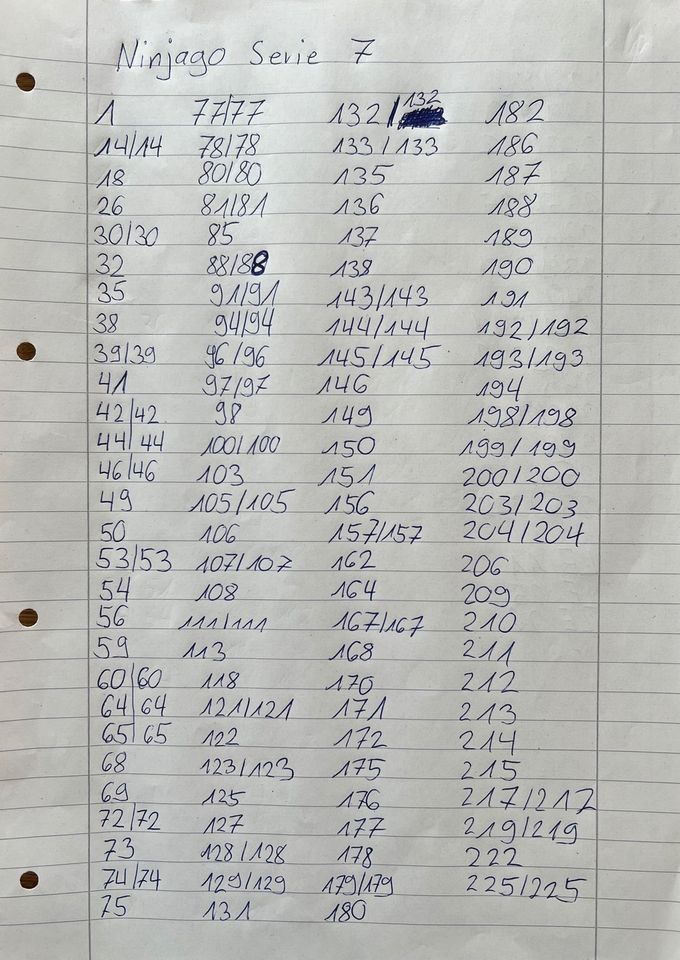 Ninjago Serie 7
1 77/77 132/132 182
14/14 78/78 133/133 186
18 80/80 135 187
26 81/81 136 188
30/30 85 137 189
32 88/88 138 190
35 91/91 143/143 191
38 94/94 144/144 192/192
39/39 96/96 145/145 193/193
41 97/97 146 194
42/42 98 149 198/198
44/44 100/100 150 199/199
46/46 103 151 200/200
49 105/105 156 203/203
50 106 157/157 204/204
53/53 107/107 162 206
54 108 164 209
56 111/111 167/167 210
59 113 168 211
60/60 118 170 212
64/64 121/121 171 213
65/65 122 172 214
68 123/123 175 215
69 125 176 217/217
72/72 127 177 219/219
73 128/128 178 222
74/74 129/129 179/179 225/225
75 131 180